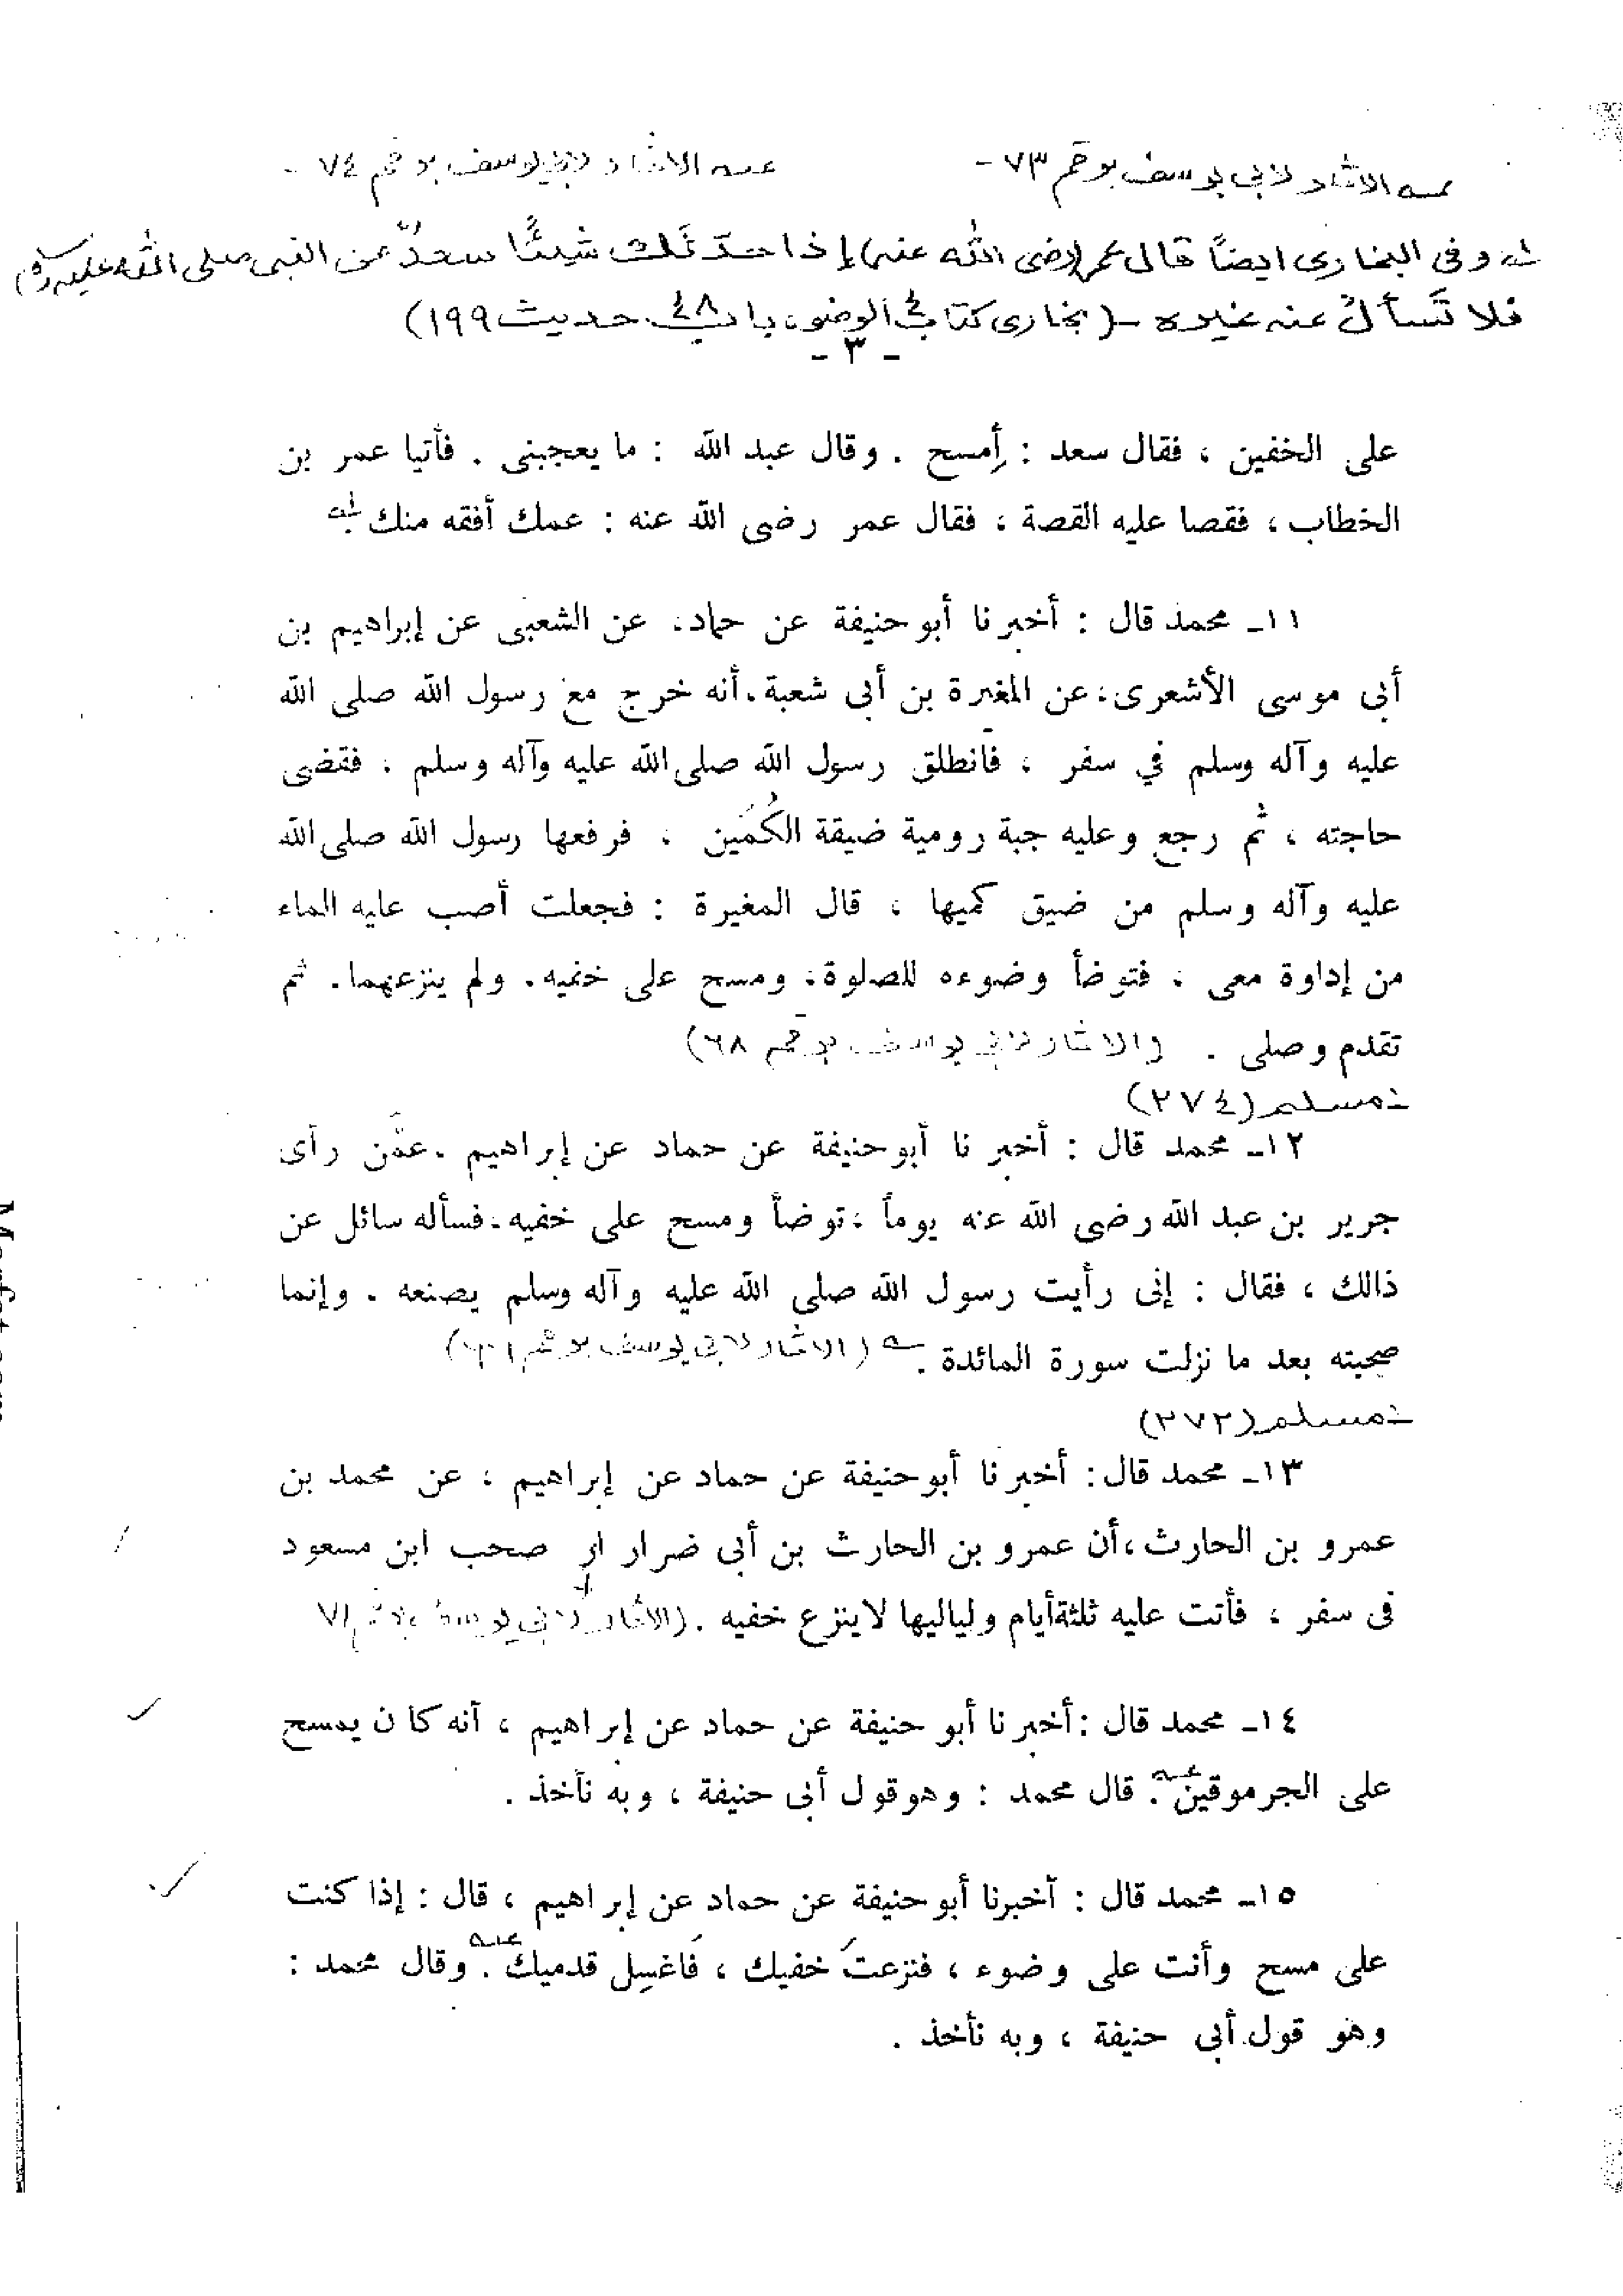 عـه الاثار لابی یوسف برقم ۷۳ -
عـه الاثار لابی یوسف برقم ۷٤ -
لـه و فی البخاری ایضاً قال عمر (رضی الله عنه) إذا حدّثك شيئًا سعدٌ عن النبی صلی الله علیه وسلم
فلا تَسألْ عنه غيره - (بخاری کتاب ٤ الوضوء باب ٤٨ حدیث ۱۹۹)
- ٣ -
على الخفين ، فقال سعد : أمسح . وقال عبد الله : ما يعجبنى . فأتيا عمر بن
الخطاب ، فقصا عليه القصة ، فقال عمر رضى الله عنه : عمك أفقه منك لـه
١١ـ محمد قال : أخبرنا أبو حنيفة عن حماد، عن الشعبى عن إبراهيم بن
أبى موسى الأشعرى، عن المغيرة بن أبى شعبة. أنه خرج مع رسول الله صلى الله
عليه وآله وسلم في سفر ، فانطلق رسول الله صلى الله عليه وآله وسلم ، فقضى
حاجته ، ثم رجع وعليه جبة رومية ضيقة الكُمَين ، فرفعها رسول الله صلى الله
عليه وآله وسلم من ضيق كميها ، قال المغيرة : فجعلت أصب عليه الماء
من إداوة معى ، فتوضأ وضوءه للصلوة، ومسح على خفيه. ولم ينزعهما. ثم
تقدم وصلى . (الاثار لابی یوسف برقم ٦٨)
ـ مسلم (٢٧٤)
١٢ـ محمد قال : أخبر نا أبوحنيفة عن حماد عن إبراهيم . عمّن رأى
جرير بن عبد الله رضى الله عنه يوماً ، توضأ ومسح على خفيه. فسأله سائل عن
ذالك ، فقال : إنى رأيت رسول الله صلى الله عليه وآله وسلم يصنعه . وإنما
صحبته بعد ما نزلت سورة المائدة . (الاثار لابی یوسف برقم
ـ مسلم (٢٧٢)
١٣ـ محمد قال: أخبر نا أبوحنيفة عن حماد عن إبراهيم ، عن محمد بن
عمرو بن الحارث ،أن عمرو بن الحارث بن أبى ضرار صحب ابن مسعود
فى سفر ، فأتت عليه ثلثة أيام ولياليها لاينزع خفيه . (الاثار لابی یوسف برقم ۷۱
١٤ـ محمد قال :أخبر نا أبو حنيفة عن حماد عن إبراهيم ، أنه كان يمسح
على الجرموقين عـه . قال محمد : وهوقول أبى حنيفة ، وبه نأخذ .
١٥ـ محمد قال : أخبرنا أبو حنيفة عن حماد عن إبراهيم ، قال : إذا كنت
على مسح وأنت على وضوء ، فنزعتَ خفيك ، فَاغسِل قدميك عـه . وقال محمد :
وهو قول أبى حنيفة ، وبه نأخذ .